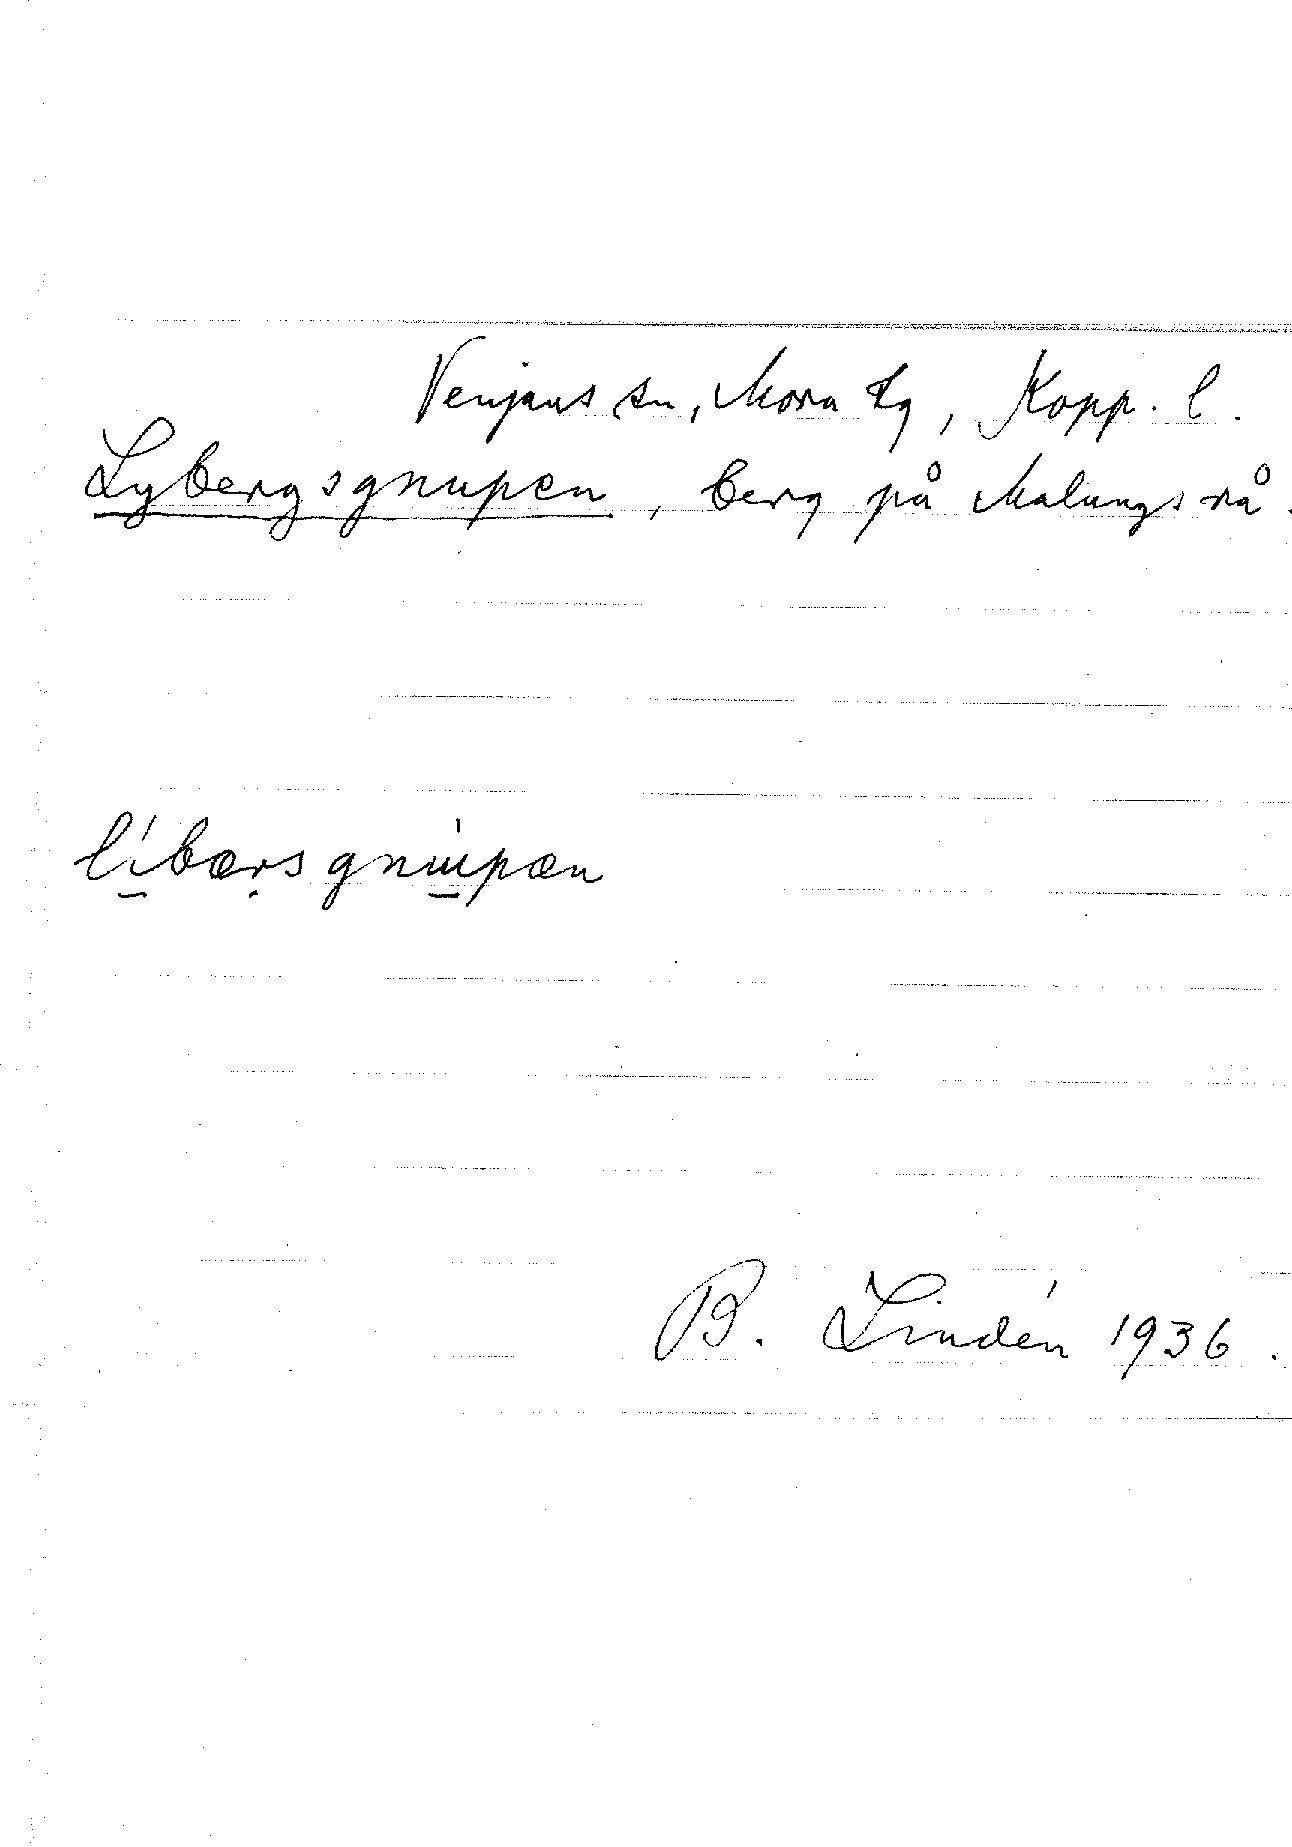 Venjans sn, Mora tg, Kopp. l.
Lybergsgnupen, berg på Malungsrå.
líbærsgnupæn
B. Lindén 1936.